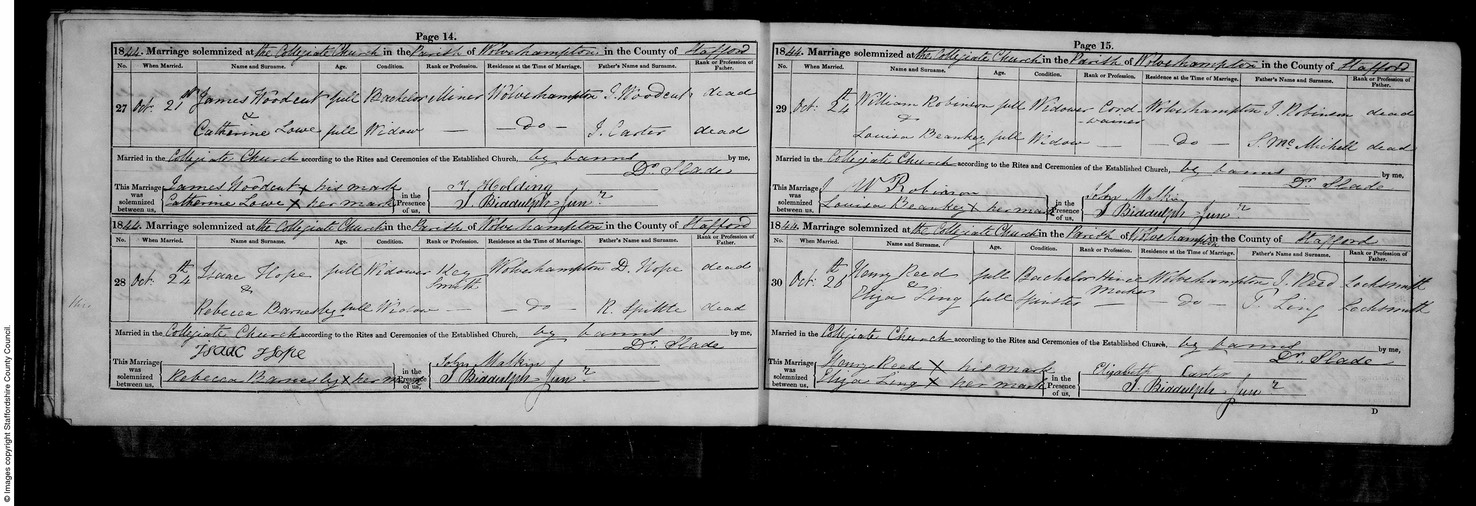 Page 14.
1844. Marriage solemnized at the Collegiate Church in the Parish of Wolverhampton in the County of Stafford
No. When Married. Name and Surname. Age. Condition. Rank or Profession. Residence at the Time of Marriage. Father's Name and Surname. Rank or Profession of Father.
27 Oct. 21st James Woodcut full Bachelor Miner Wolverhampton J. Woodcut dead
&
Catherine Lowe full Widow — — do — J. Carter dead
Married in the Collegiate Church according to the Rites and Ceremonies of the Established Church, by banns by me,
Dr. Slade
This Marriage was solemnized between us, James Woodcut x his mark in the Presence of us, Holding
Catherine Lowe x her mark J. Biddulph Junr
1844. Marriage solemnized at the Collegiate Church in the Parish of Wolverhampton in the County of Stafford
No. When Married. Name and Surname. Age. Condition. Rank or Profession. Residence at the Time of Marriage. Father's Name and Surname. Rank or Profession of Father.
28 Oct. 24th Isaac Hope full Widower Key Smith Wolverhampton D. Hope dead
&
Rebecca Barnesby full Widow — — do — R. Spittle dead
Married in the Collegiate Church according to the Rites and Ceremonies of the Established Church, by banns by me,
Dr. Slade
This Marriage was solemnized between us, Isaac Hope in the Presence of us, John Malkin
Rebecca Barnesby x her mark J. Biddulph Junr
Page 15.
1844. Marriage solemnized at the Collegiate Church in the Parish of Wolverhampton in the County of Stafford
No. When Married. Name and Surname. Age. Condition. Rank or Profession. Residence at the Time of Marriage. Father's Name and Surname. Rank or Profession of Father.
29 Oct. 24th William Robinson full Widower Cord-wainer Wolverhampton J. Robinson dead
&
Louisa Beankey full Widow — — do — S. Mc Michell dead
Married in the Collegiate Church according to the Rites and Ceremonies of the Established Church, by banns by me,
Dr. Slade
This Marriage was solemnized between us, W Robinson in the Presence of us, John Malkin
Louisa Beankey x her mark J. Biddulph Junr
1844. Marriage solemnized at the Collegiate Church in the Parish of Wolverhampton in the County of Stafford
No. When Married. Name and Surname. Age. Condition. Rank or Profession. Residence at the Time of Marriage. Father's Name and Surname. Rank or Profession of Father.
30 Oct. 28th Henry Reed full Bachelor Hinge Maker Wolverhampton J. Reed Locksmith
&
Eliza Ling full Spinster — — do — T. Ling Locksmith
Married in the Collegiate Church according to the Rites and Ceremonies of the Established Church, by banns by me,
Dr. Slade
This Marriage was solemnized between us, Henry Reed x his mark in the Presence of us, Elizabeth Carter
Eliza Ling x her mark J. Biddulph Junr
D
© Images copyright Staffordshire County Council.